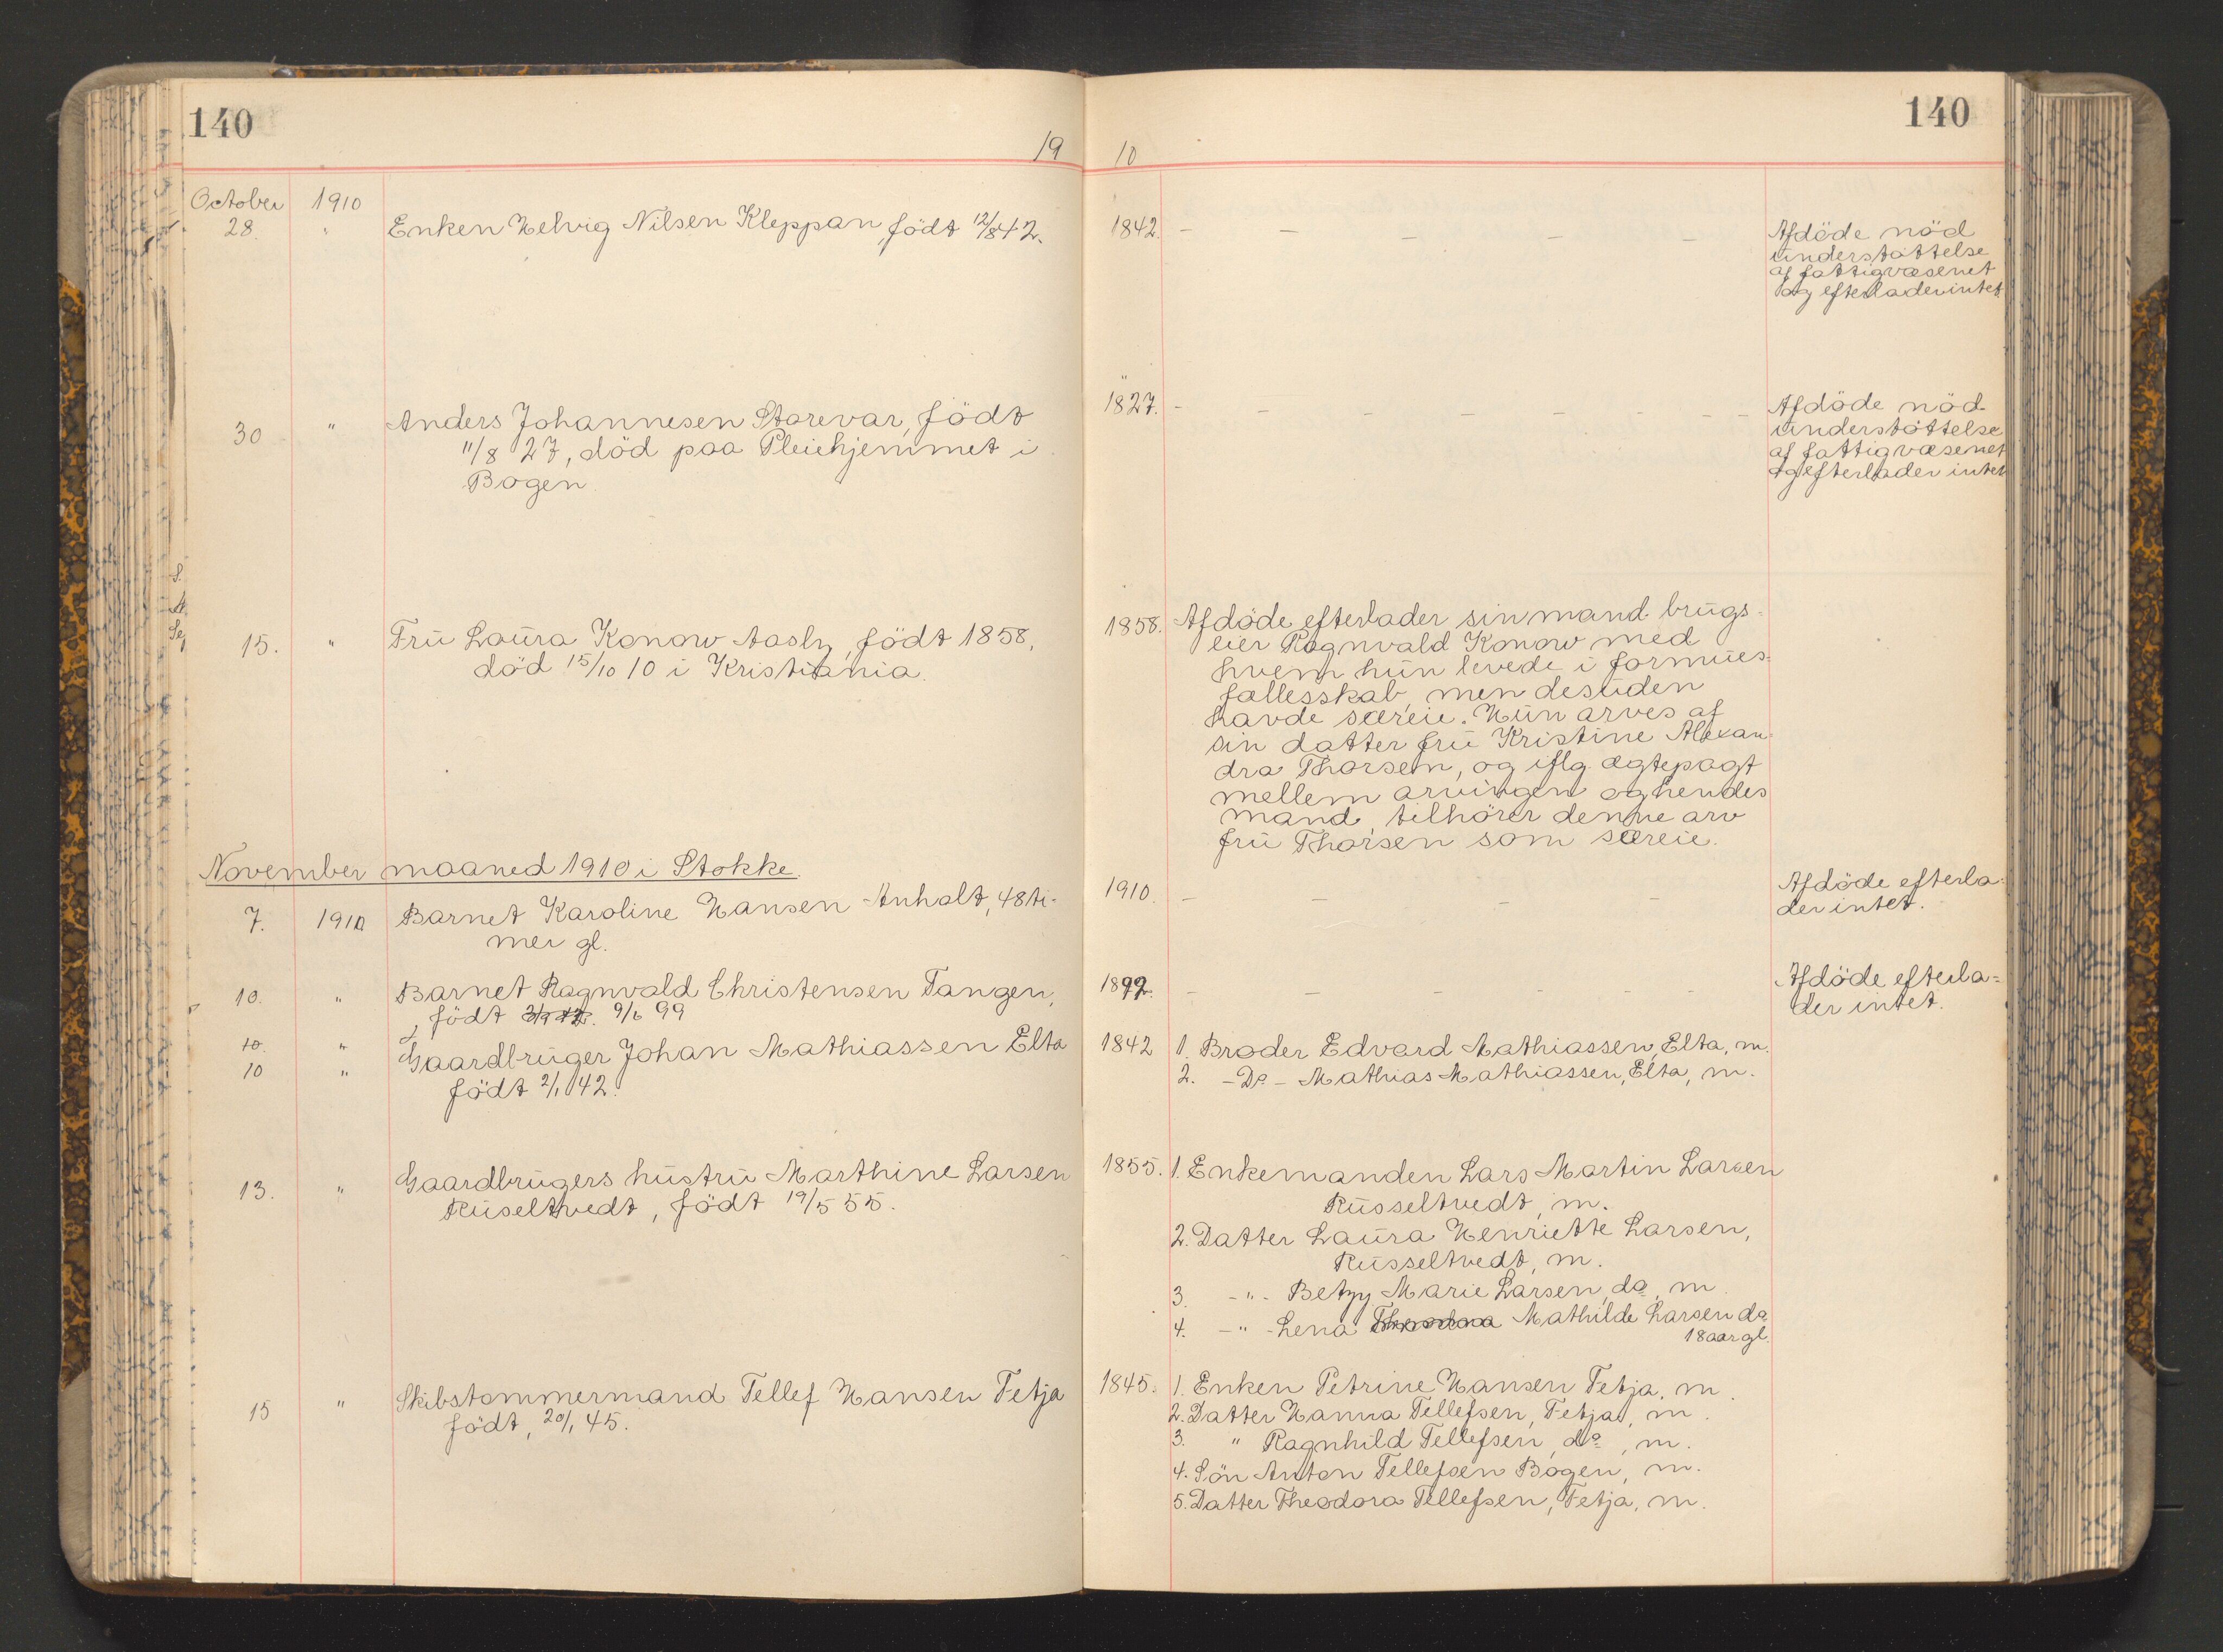 140
19
October 1910
28. " Enken Helvig Nilsen Kleppan, født 12/8 42.
30 " Anders Johannesen Storevar, födt
11/8 27, död paa Pleiehjemmet i
Bogen
15. " Fru Laura Konow Aasly, födt 1858,
död 15/10 10 i Kristiania.
November maaned 1910 i Stokke.
7. 1910 Barnet Karoline Hansen Anhalt, 48 ti-
mer gl.
10. " Barnet Ragnvald Christensen Tangen,
födt 9/6 99
10. "
10 " Gaardbruger Johan Mathiassen Elta
födt 2/1 42.
13. " Gaardbrugers hustru Marthine Larsen
Ruseltvedt, födt 19/5 55.
15 " Skibstømmermand Tellef Hansen Fetja
födt, 20/1 45.
140
10
1842. - - - - - Afdöde nöd
understøttelse
af fattigvæsenet
og efterlader intet
1827. - - - - - - - - Afdöde nöd
understøttelse
af fattigvæsenet
og efterlader intet
1858. Afdöde efterlader sin mand brugs-
eier Ragnvald Konow med
hvem hun levede i formues-
fællesskab, men desuden
havde særeie. Hun arves af
sin datter fru Kristine Alexan-
dra Thorsen, og iflg. ægtepagt
mellem arvingen og hendes
mand, tilhörer denne arv
fru Thorsen som særeie.
1910. - - - - Afdöde efterla-
der intet.
1899. - - - - - - Afdöde efterla=
der intet.
1842 1. Broder Edvard Mathiassen, Elta, m.
2. - Do - Mathias Mathiassen, Elta, m.
1855. 1. Enkemanden Lars Martin Larsen
Russeltvedt, m.
2. Datter Laura Henriette Larsen,
Russeltvedt, m.
3. - " - Betzy Marie Larsen, do, m
4. - " - Lena Theodora Mathilde Larsen do
18 aar gl.
1845. 1. Enken Petrine Hansen Fetja, m.
2. Datter Hanna Tellefsen, Fetja, m.
3. " Ragnhild Tellefsen, do, m.
4. Sön Anton Tellefsen Bogen, m.
5. Datter Theodora Tellefsen, Fetja, m.